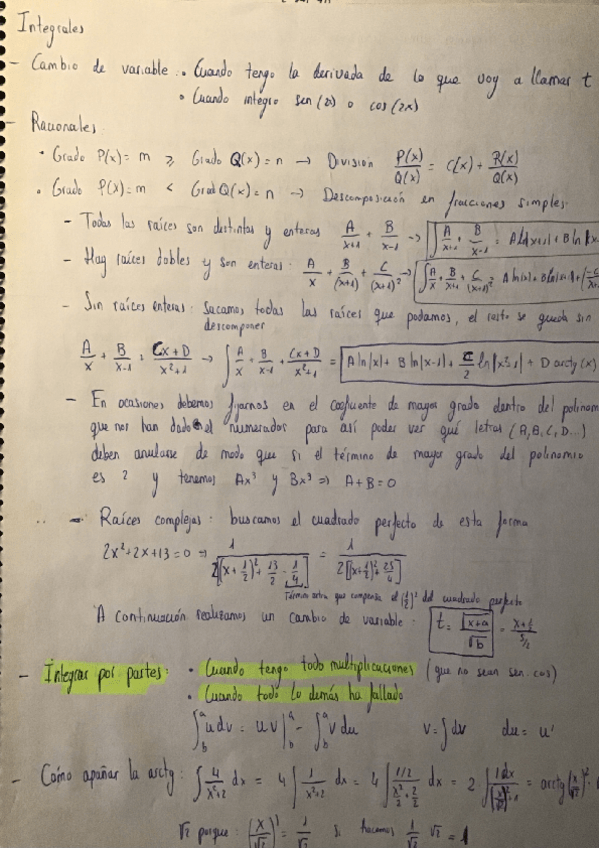 Integrales
- Cambio de variable: • Cuando tengo la derivada de lo que voy a llamar t
• Cuando integro sen(2x) o cos(2x)
- Racionales
• Grado P(x)=m ≥ Grado Q(x)=n → División P(x)/Q(x) = C(x) + R(x)/Q(x)
• Grado P(x)=m < Grad Q(x)=n → Descomposición en fracciones simples.
- Todas las raíces son distintas y enteras A/(x+1) + B/(x-1) → ∫ A/(x+1) + B/(x-1) = A ln|x+1| + B ln|x
- Hay raíces dobles y son enteras: A/x + B/(x+1) + C/(x+1)² → ∫ A/x + B/(x+1) + C/(x+1)² =
- Sin raíces enteras: Sacamos todas las raíces que podamos, el resto se queda sin
descomponer
A/x + B/(x-1) + (Cx+D)/(x²+1) → ∫ A/x + B/(x-1) + (Cx+D)/(x²+1) = A ln|x| + B ln|x-1| + C/2 ln|x²+1| + D arctg(x)
- En ocasiones debemos fijarnos en el coeficiente de mayor grado dentro del polinom
que nos han dado el numerador para así poder ver qué letras (A,B,C,D...)
deben anularse de modo que si el término de mayor grado del polinomio
es 2 y tenemos Ax³ y Bx³ ⇒ A+B=0
- Raíces complejas: buscamos el cuadrado perfecto de esta forma
2x²+2x+13=0 ⇒ 1/2[(x+1/2)²+13/2-1/4] = 1/2[(x+1/2)²+25/4]
Término extra que compensa el (1/2)² del cuadrado perfecto
A continuación realizamos un cambio de variable: t = (x+a)/√b = (x+1/2)/(5/2)
- Integrar por partes: • Cuando tengo todo multiplicaciones (que no sean sen. cos)
• Cuando todo lo demás ha fallado
∫ᵇᵃ u dv = uv|ᵇᵃ - ∫ᵇᵃ v du v = ∫dv du = u'
- Cómo apañar la arctg: ∫ 4/(x²+2) dx = 4 ∫ 1/(x²+2) dx = 4 ∫ (1/2)/(x²/2+2/2) dx = 2 ∫ 1dx/((x/√2)²+1) = arctg(x/√2)
√2 porque: (x/√2)' = 1/√2 si hacemos 1/√2 √2 = 1